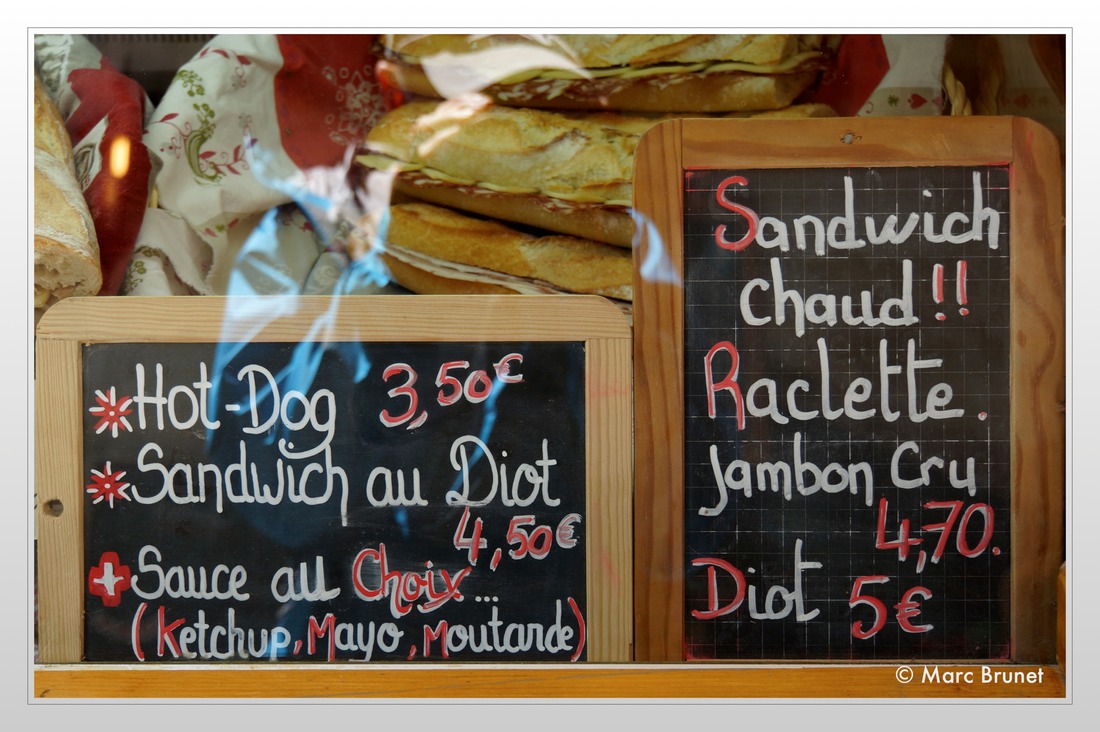 Hot-Dog 3,50€
Sandwich au Diot
4,50€
Sauce au Choix...
(Ketchup, Mayo, Moutarde)
Sandwich
chaud!!
Raclette.
Jambon Cru
4,70.
Diot 5€
© Marc Brunet